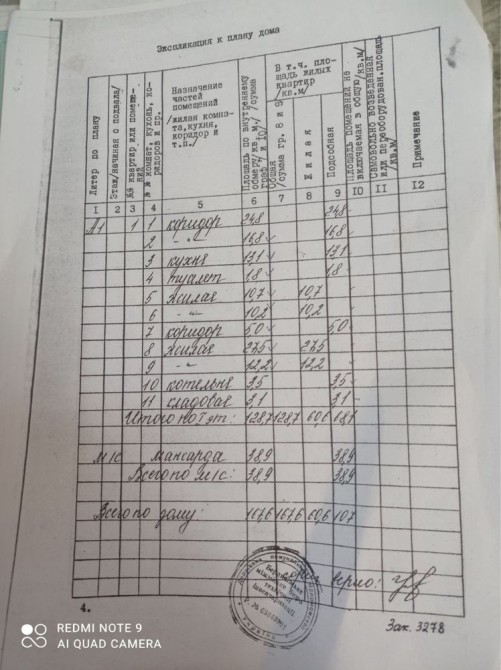 Экспликация к плану дома
Литер по плану
Этаж/начиная с подвала/
№№ квартир или помеще-
ний
№№ комнат, кухонь, ко-
ридоров и пр.
Назначение
частей
помещений
/жилая комна-
та, кухня,
коридор и
т.п./
Площадь по внутреннему
обмеру/кв.м./ /сумма
граф 7, 10/
В т.ч. пло-
щадь жилых
квартир
/кв.м/
Общая
/сумма гр. 8 и 9/
Жилая
Подсобная
Площадь помещений не
включаемая в общую/кв.м/
Самовольно возведенная
или переоборудован.площадь
/кв.м/
Примечание
I 2 3 4 5 6 7 8 9 IO II I2
А1 1 1 коридор 24,8 24,8
2 -"- 16,8 16,8
3 кухня 13,1 13,1
4 туалет 1,8 1,8
5 жилая 10,7 10,7
6 -"- 10,2 10,2
7 коридор 5,0 5,0
8 жилая 27,5 27,5
9 -"- 12,2 12,2
10 котельня 3,5 3,5
11 кладовая 3,1 3,1
Итого по 1 эт: 128,7 128,7 60,6 68,1
м/с мансарда 38,9 38,9
Всего по м/с: 38,9 38,9
Всего по дому: 167,6 167,6 60,6 107
верно:
4.
Зак. 3278
REDMI NOTE 9
AI QUAD CAMERA